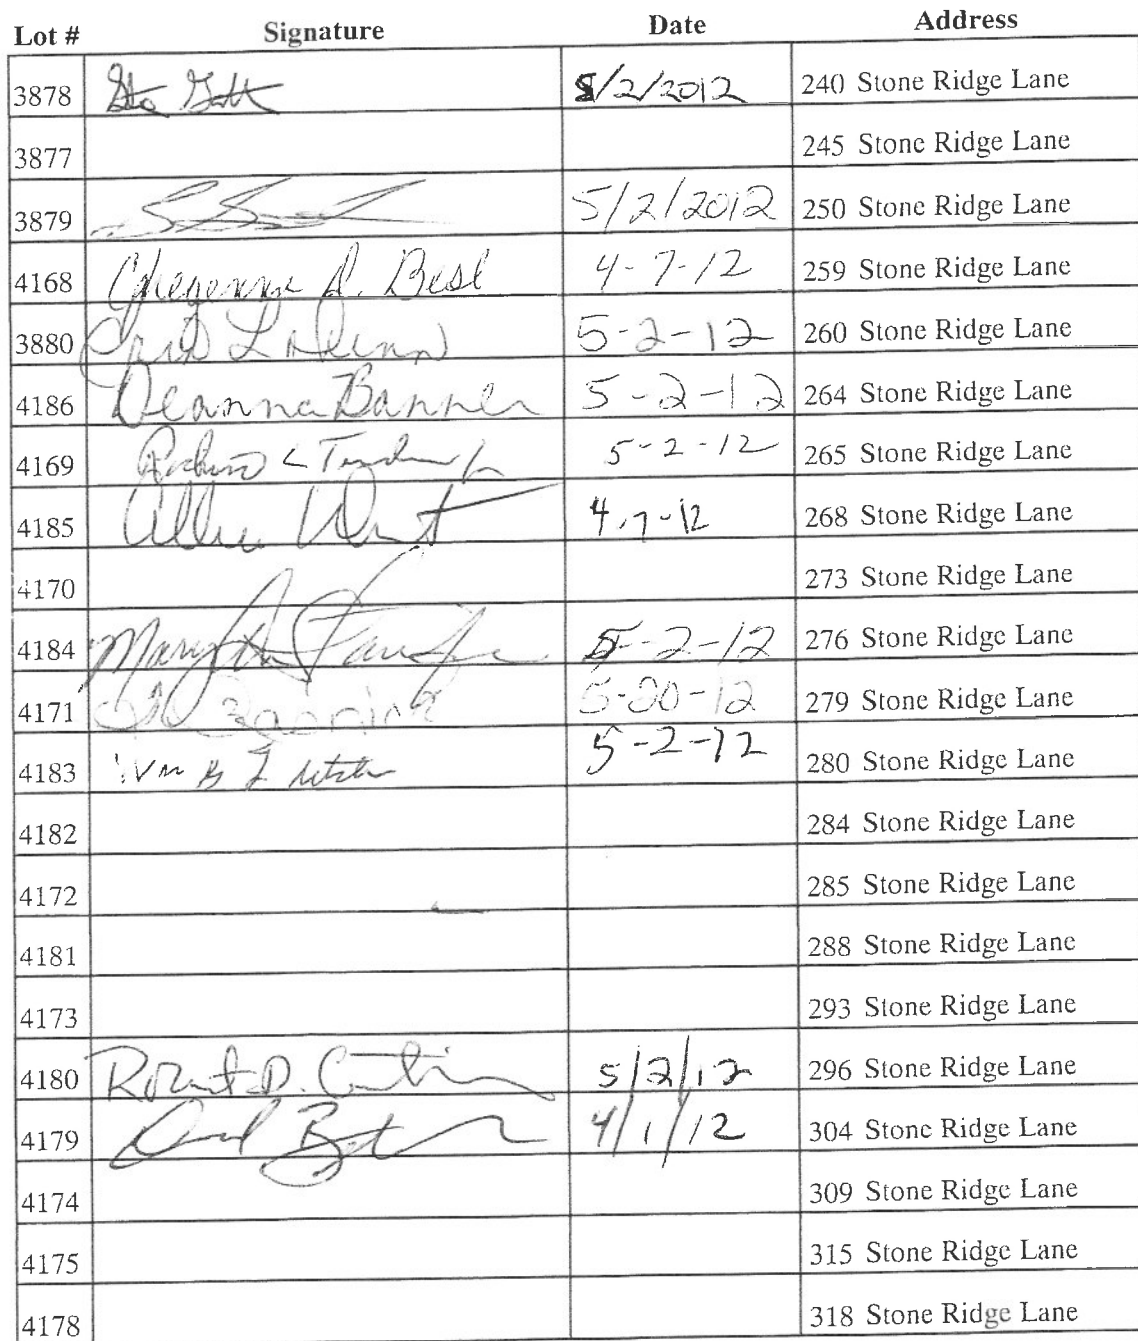 Lot # Signature Date Address
3878 5/2/2012 240 Stone Ridge Lane
3877 245 Stone Ridge Lane
3879 5/2/2012 250 Stone Ridge Lane
4168 Cheyenne D. Best 4-7-12 259 Stone Ridge Lane
3880 5-2-12 260 Stone Ridge Lane
4186 Deanna Banner 5-2-12 264 Stone Ridge Lane
4169 5-2-12 265 Stone Ridge Lane
4185 4-7-12 268 Stone Ridge Lane
4170 273 Stone Ridge Lane
4184 Mary 5-2-12 276 Stone Ridge Lane
4171 5-20-12 279 Stone Ridge Lane
4183 Wm B 5-2-12 280 Stone Ridge Lane
4182 284 Stone Ridge Lane
4172 285 Stone Ridge Lane
4181 288 Stone Ridge Lane
4173 293 Stone Ridge Lane
4180 Robert D. 5/2/12 296 Stone Ridge Lane
4179 4/1/12 304 Stone Ridge Lane
4174 309 Stone Ridge Lane
4175 315 Stone Ridge Lane
4178 318 Stone Ridge Lane